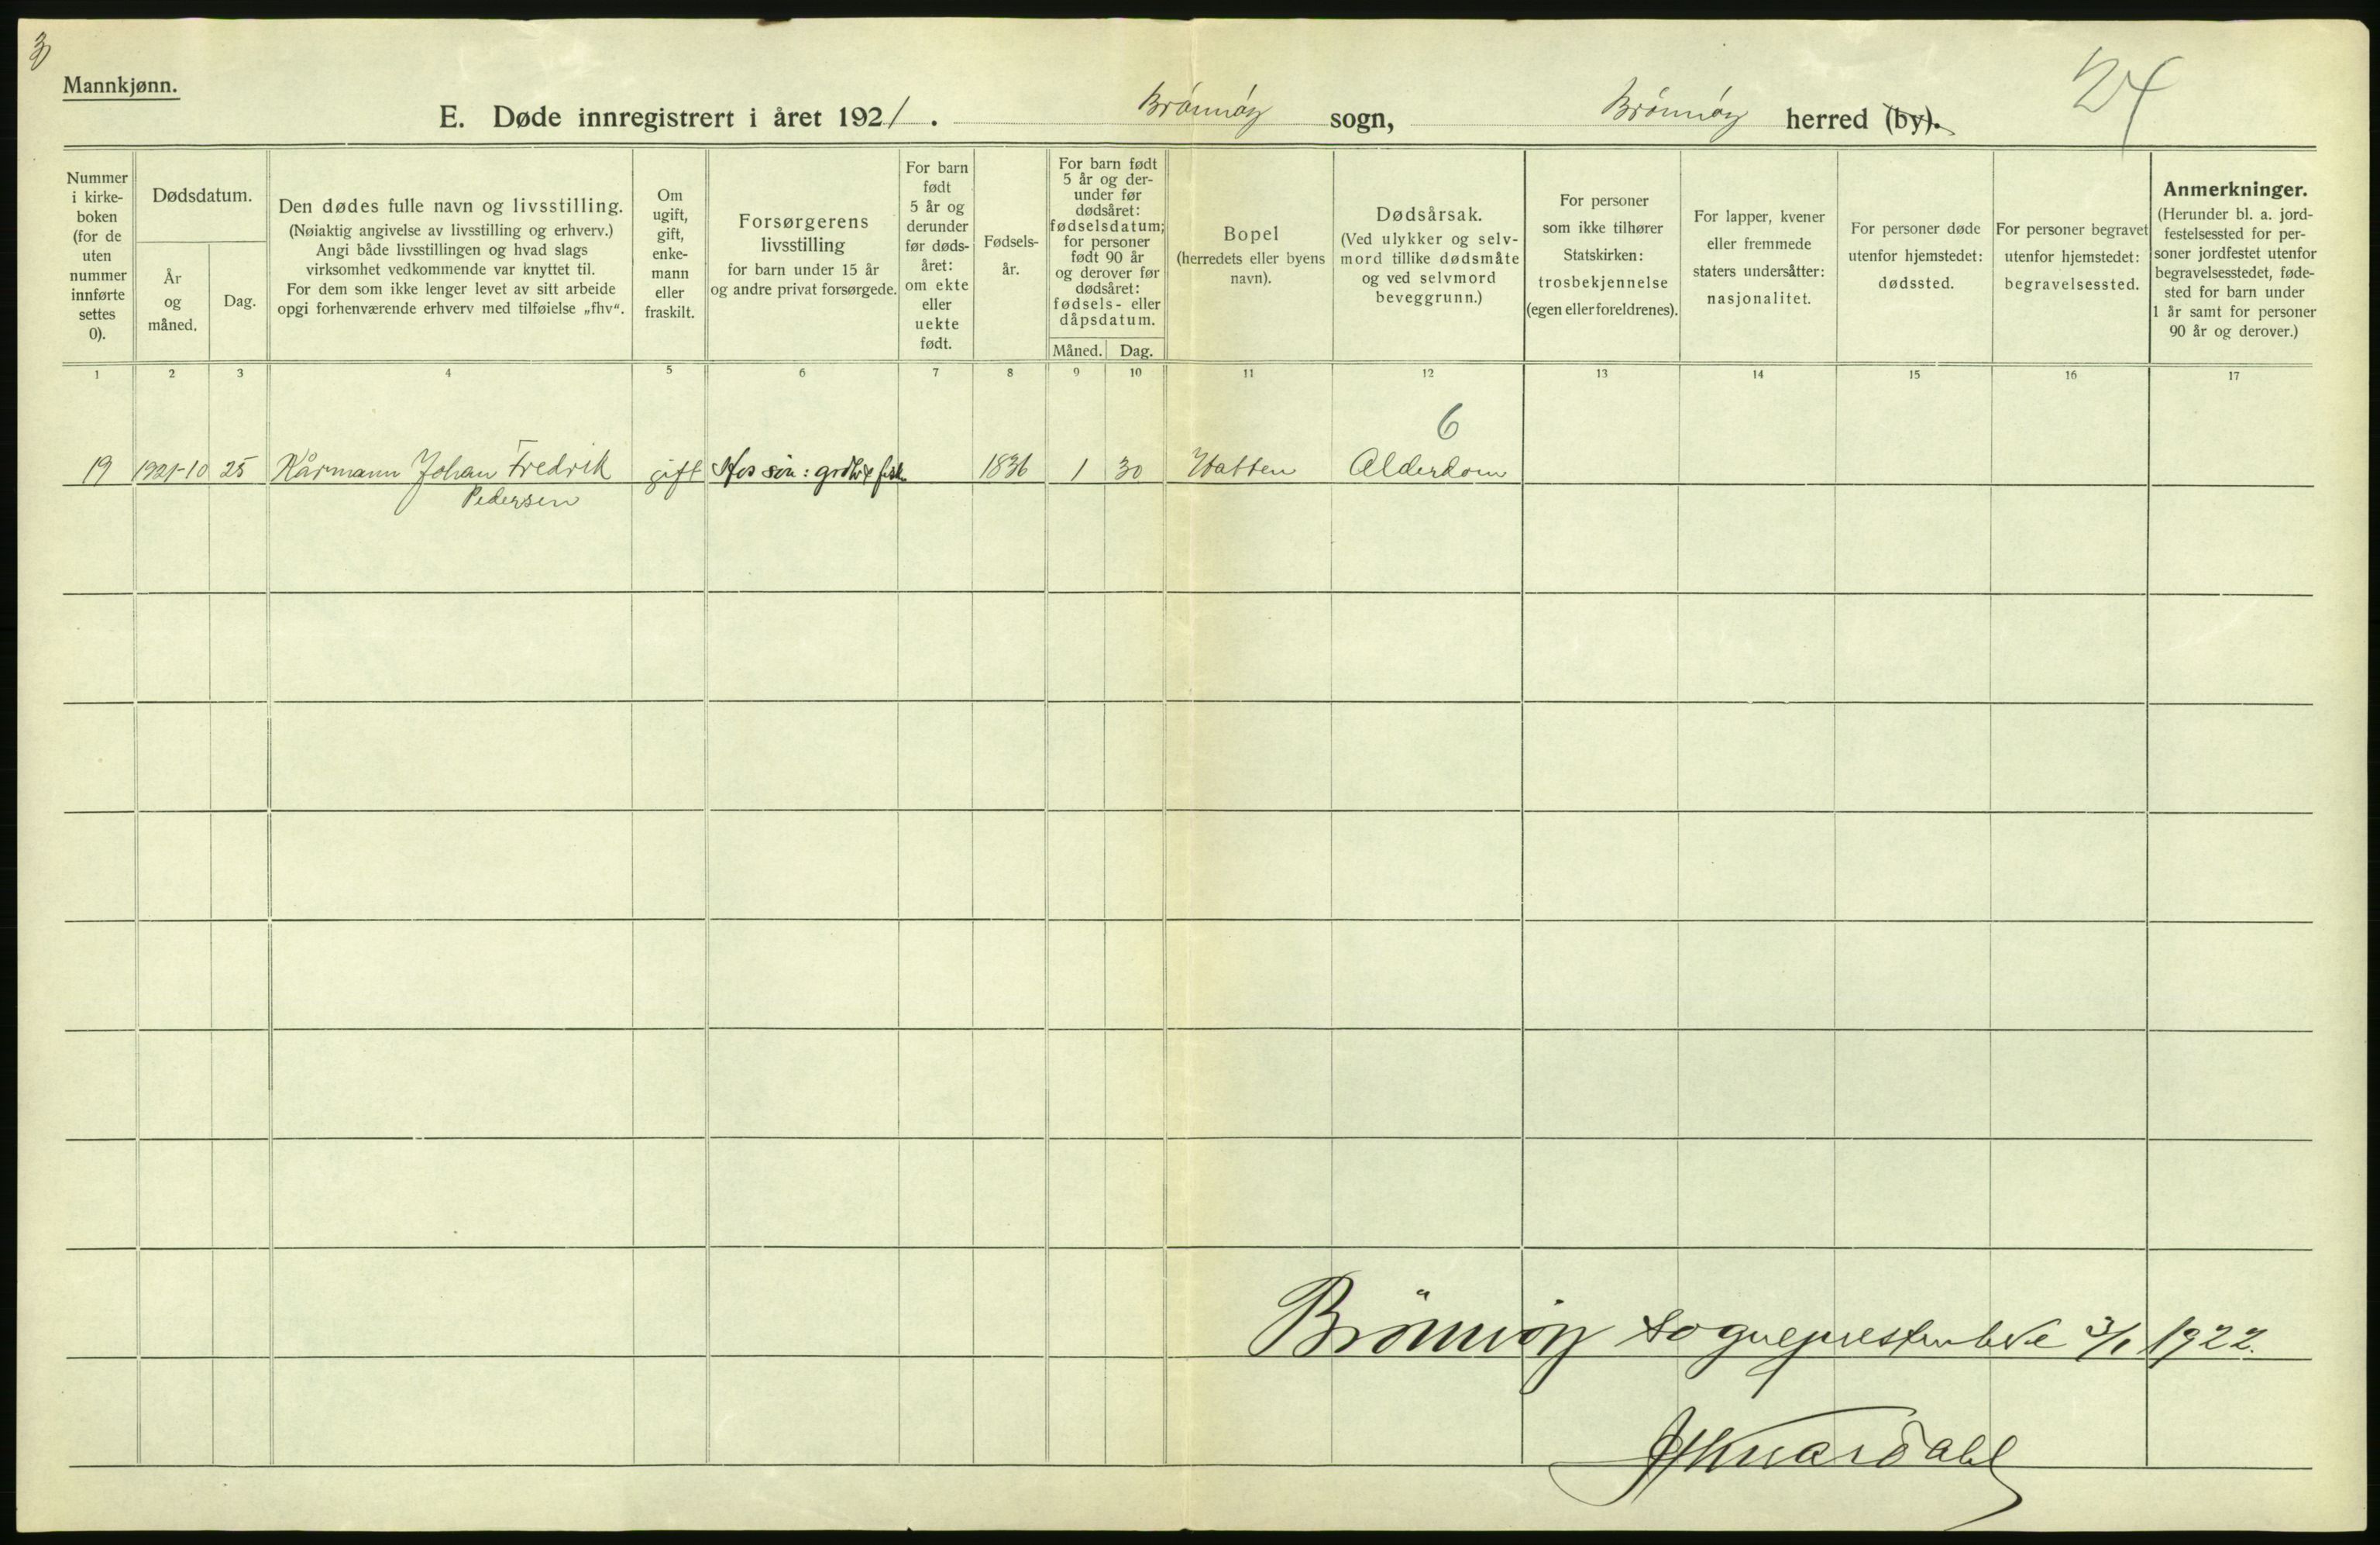 3)
Mannkjønn.
24
E. Døde innregistrert i året 1921. Brönnöy sogn, Brönnöy herred (by).
Nummer
i kirke-
boken
(for de
uten
nummer
innførte
settes
0).
Dødsdatum.
År
og
måned.
Dag.
Den dødes fulle navn og livsstilling.
(Nøiaktig angivelse av livsstilling og erhverv.)
Angi både livsstillingen og hvad slags
virksomhet vedkommende var knyttet til.
For dem som ikke lenger levet av sitt arbeide
opgi forhenværende erhverv med tilføielse „fhv“.
Om
ugift,
gift,
enke-
mann
eller
fraskilt.
Forsørgerens
livsstilling
for barn under 15 år
og andre privat forsørgede.
For barn
født
5 år og
derunder
før døds-
året:
om ekte
eller
uekte
født.
Fødsels-
år.
For barn født
5 år og der-
under før
dødsåret:
fødselsdatum;
for personer
født 90 år
og derover før
dødsåret:
fødsels- eller
dåpsdatum.
Måned. Dag.
Bopel
(herredets eller byens
navn).
Dødsårsak.
(Ved ulykker og selv-
mord tillike dødsmåte
og ved selvmord
beveggrunn.)
For personer
som ikke tilhører
Statskirken:
trosbekjennelse
(egen eller foreldrenes).
For lapper, kvener
eller fremmede
staters undersåtter:
nasjonalitet.
For personer døde
utenfor hjemstedet:
dødssted.
For personer begravet
utenfor hjemstedet:
begravelsessted.
Anmerkninger.
(Herunder bl. a. jord-
festelsessted for per-
soner jordfestet utenfor
begravelsesstedet, føde-
sted for barn under
1 år samt for personer
90 år og derover.)
1 2 3 4 5 6 7 8 9 10 11 12 13 14 15 16 17
6
19 1921-10 25 Kårmann Johan Fredrik gift Hos sön: 1836 1 30 Alderdom
Pedersen
Brönnöy 3/1 1922.